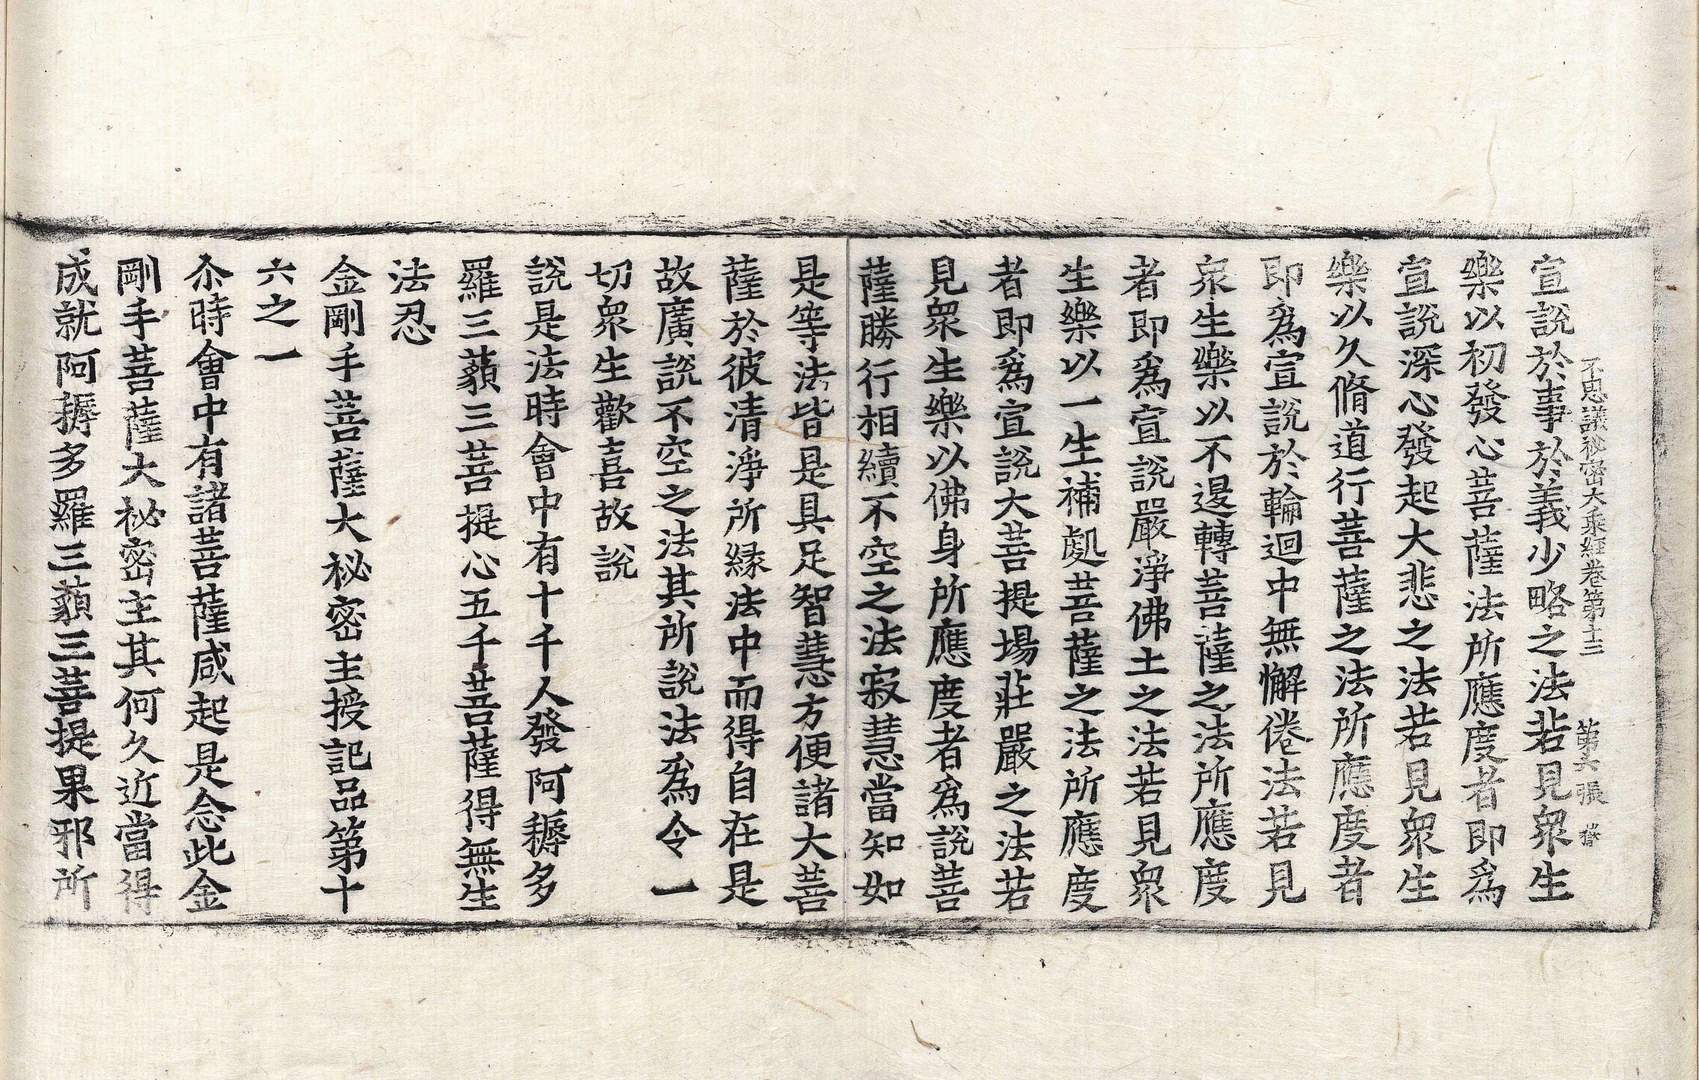 不思議秘密大乘經卷第十三　第六張
宣說於事於義少略之法若見衆生
樂以初發心菩薩法所應度者即爲
宣說深心發起大悲之法若見衆生
樂以久脩道行菩薩之法所應度者
即爲宣說於輪迴中無懈倦法若見
衆生樂以不退轉菩薩之法所應度
者即爲宣說嚴淨佛土之法若見衆
生樂以一生補處菩薩之法所應度
者即爲宣說大菩提場莊嚴之法若
見衆生樂以佛身所應度者爲說菩
薩勝行相續不空之法寂慧當知如
是等法皆是具足智慧方便諸大菩
薩於彼清淨所緣法中而得自在是
故廣說不空之法其所說法爲令一
切衆生歡喜故說
說是法時會中有十千人發阿耨多
羅三藐三菩提心五千菩薩得無生
法忍
金剛手菩薩大秘密主授記品第十
六之一
尒時會中有諸菩薩咸起是念此金
剛手菩薩大秘密主其何久近當得
成就阿耨多羅三藐三菩提果邪所